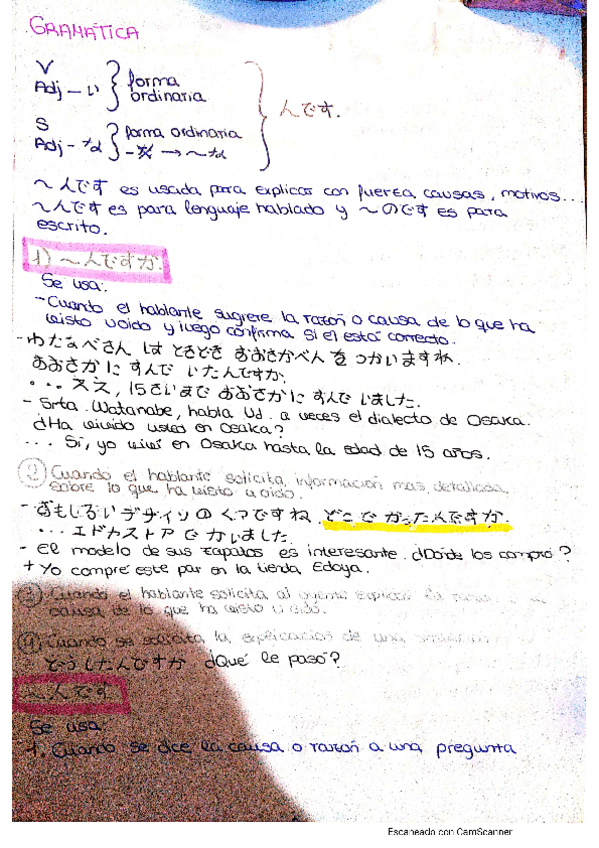 GRAMÁTICA
V
Adj - い } forma ordinaria
S
Adj - な } forma ordinaria
- だ → ~ な
んです.
~ んです es usada para explicar con fuerza causas, motivos...
~んです es para lenguaje hablado y ~のです es para
escrito.
1) ~んですか.
Se usa:
- Cuando el hablante sugiere la razón o causa de lo que ha
visto u oído y luego confirma si él está correcto.
- わたなべさん は ときどき おおさかべん を つかいますね.
おおさか に すんで いたんですか.
・・・ ええ, 15さいまで おおさかに すんで いました.
- Srta. Watanabe, habla Ud. a veces el dialecto de Osaka.
¿Ha vivido usted en Osaka?
... Sí, yo viví en Osaka hasta la edad de 15 años.
2) Cuando el hablante solicita información más detallada
sobre lo que ha visto u oído.
- おもしろい デザインの くつですね. どこで かったんですか.
・・・ エドヤストア で かいました.
- El modelo de sus zapatos es interesante. ¿Dónde los compró?
+ Yo compré este par en la tienda Edoya.
3) Cuando el hablante solicita al oyente explicar la
causa de lo que ha visto u oído.
4) Cuando se solicita la explicación de una
どうしたんですか ¿Qué le pasó?
~んです
Se usa:
1. Cuando se dice la causa o razón a una pregunta
Escaneado con CamScanner